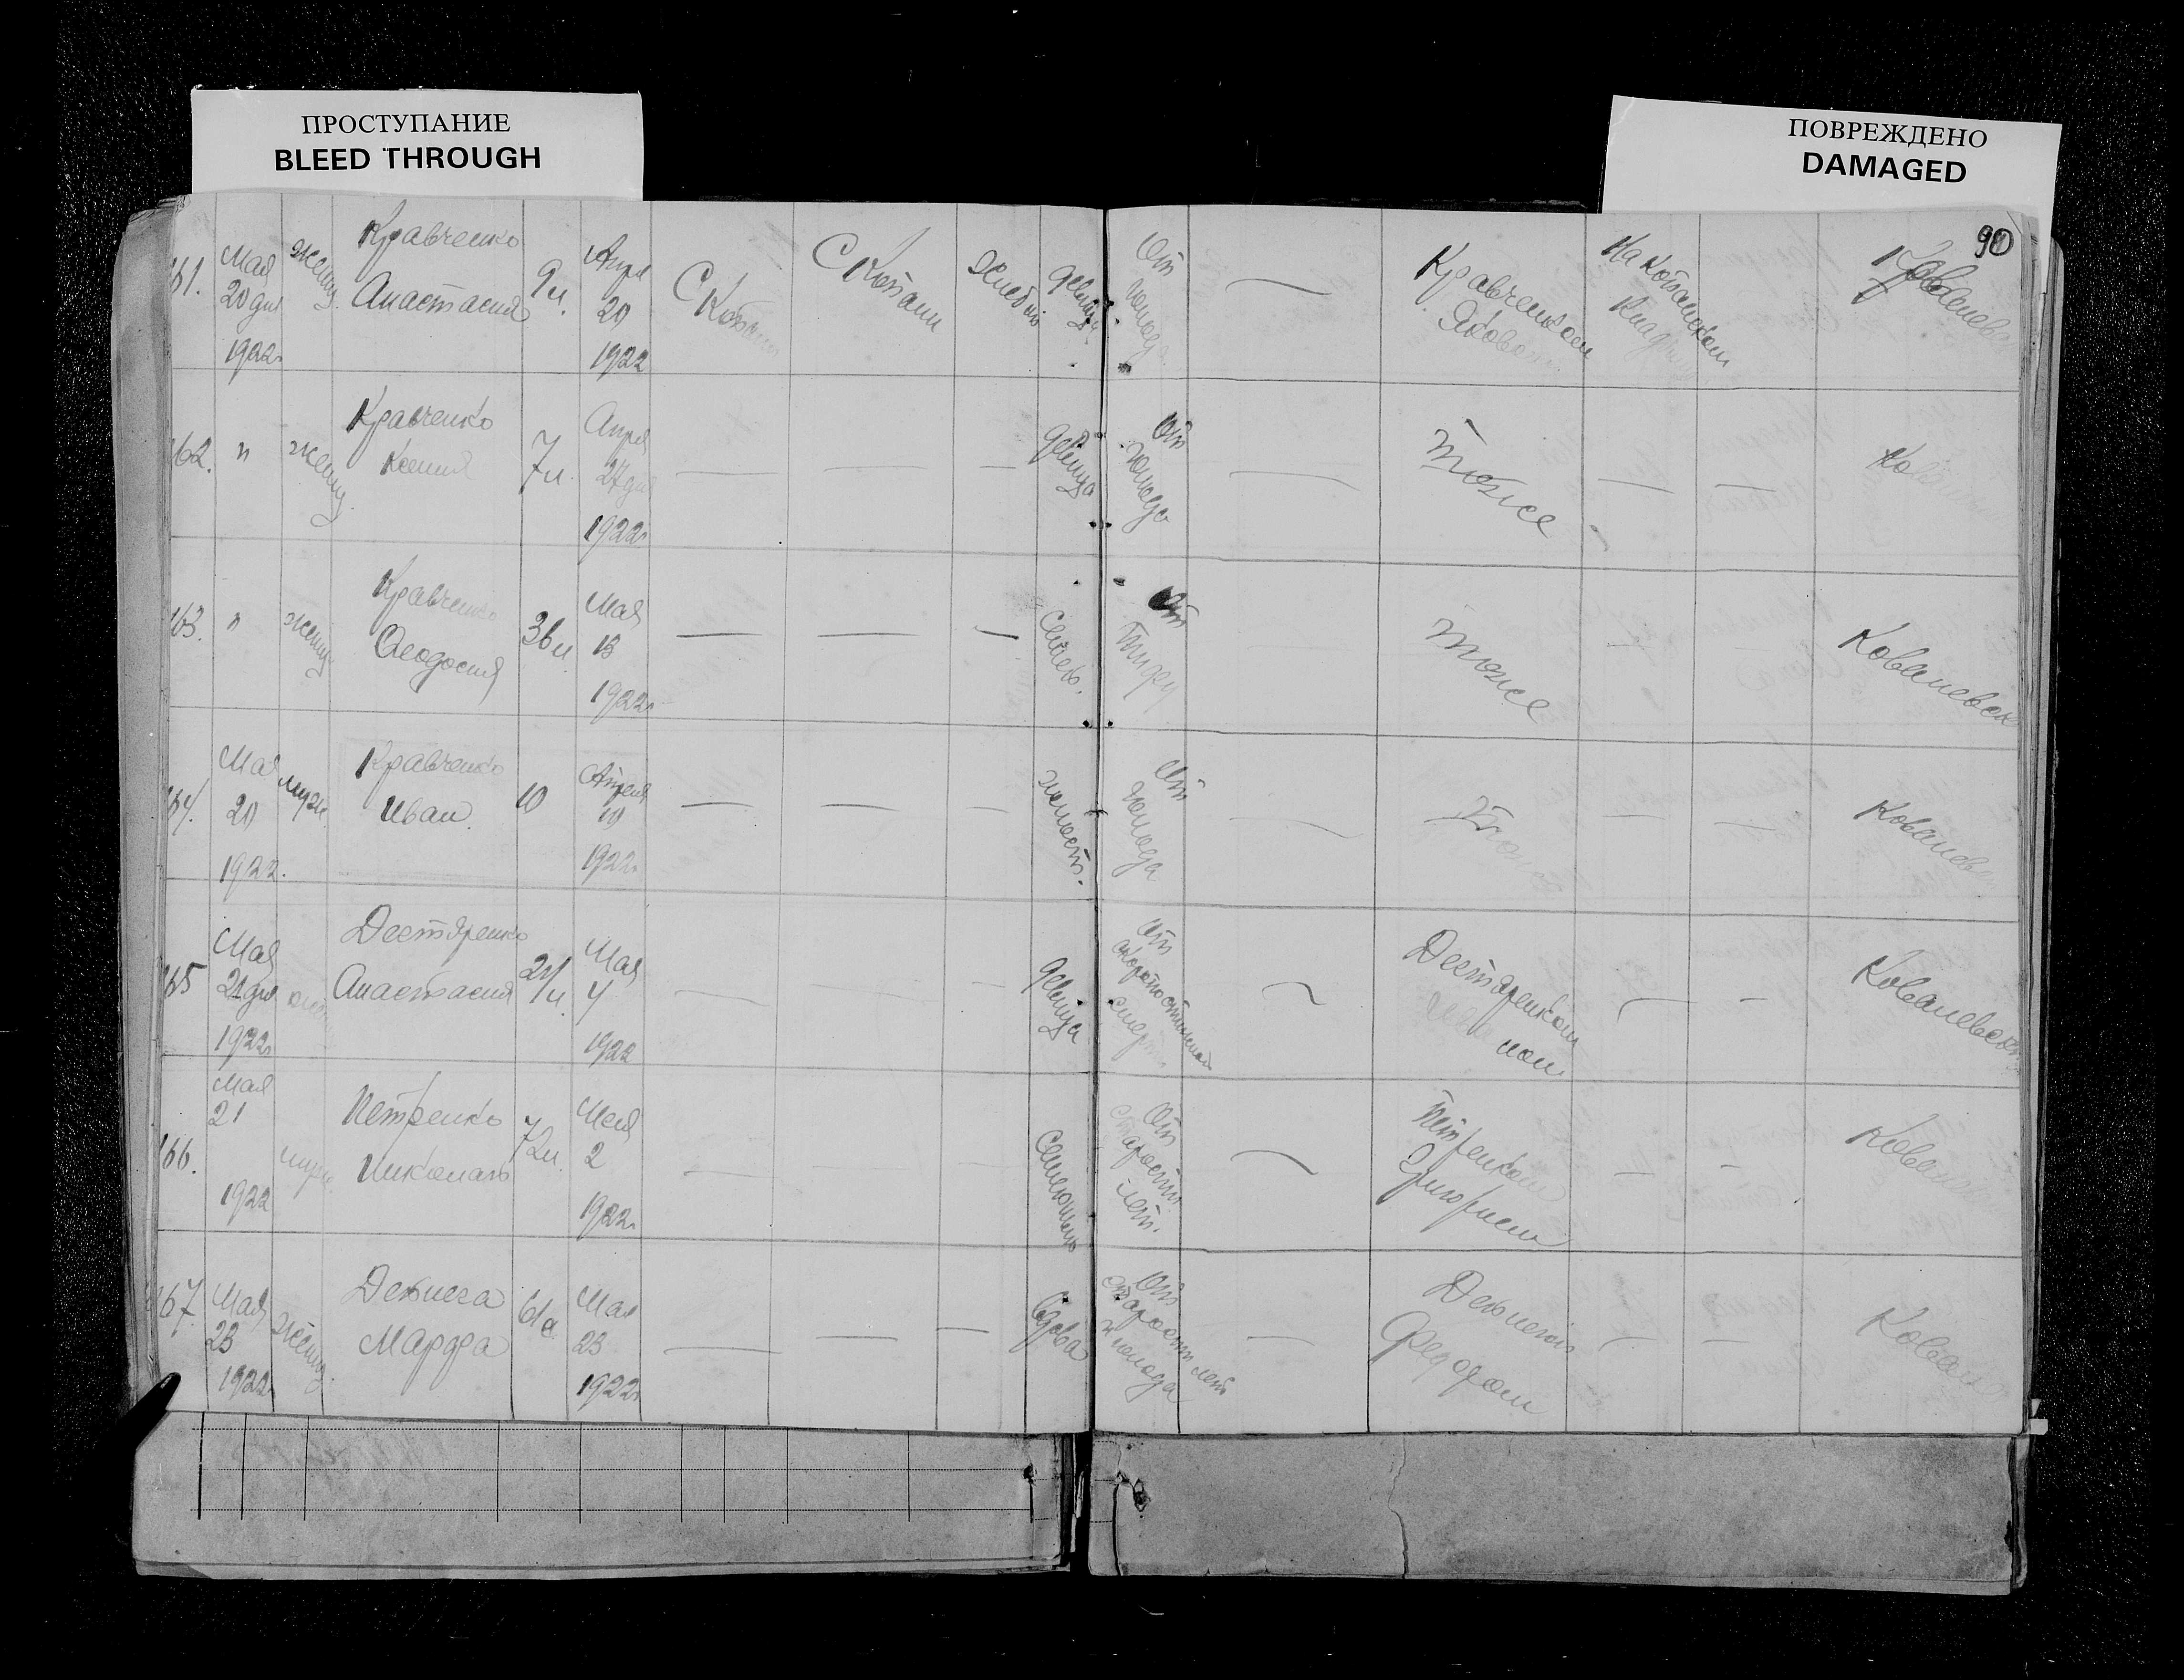 ПРОСТУПАНИЕ
BLEED THROUGH
ПОВРЕЖДЕНО
DAMAGED
90
161.
Мая
20 дня
1922
женщ.
Кравченко
Анастасия
9 л.
Апрл
20
1922
С Копани
С Копани
девица
От голода
Кравченком
Яковом
На Копанском
Кладб
162.
"
женщ.
Кравченко
Ксения
7 л.
Апрл
27 дня
1922
девица
От голода
Тоже
163.
"
женщ
Кравченко
Феодосия
36 л
Мая
13
1922
От
Тифу
Тоже
Ковалевск
164.
Мая
20
1922.
муж.
Кравченко
Иван
10
Апреля
10
1922
холост.
От голода
Тоже
Ковалевск
165
Мая
21 дня
1922
Дегтяренко
Анастасия
Мая
4
1922
девица
От скоропостижной смерт
Дегтяренком
Ковалевск
166.
Мая
21
1922
муж
Петренко
Николай
72 л.
Мая
2
1922
От старости лет.
Петренком
Григорием
167
Мая
23
1922
женщ.
Марфа
61
Мая
23
1922
вдова
От старости лет
и голода
Федором